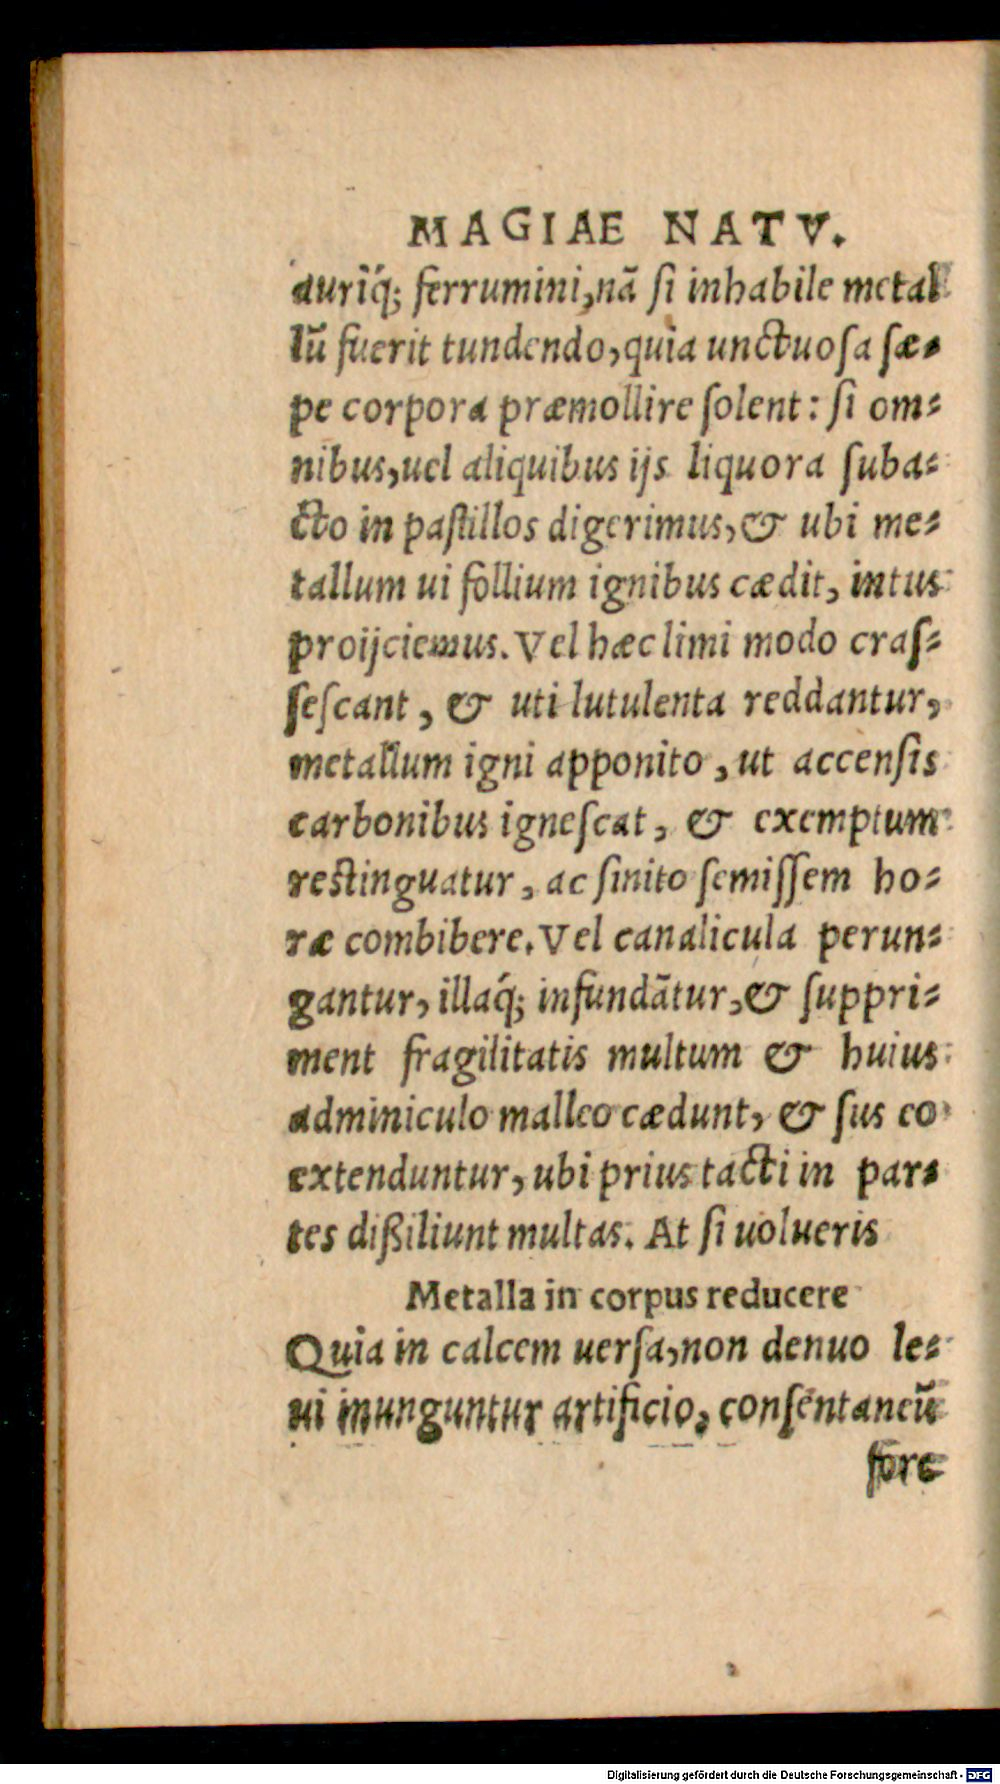 MAGIAE NATV.
auriq́; ferrumini,nã ſi inhabile metal
lũ fuerit tundendo,quia unctuoſa ſæ-
pe corpora præmollire ſolent: ſi om-
nibus,uel aliquibus ijs liquora ſuba-
cto in paſtillos digerimus,& ubi me-
tallum ui follium ignibus cædit, intus
proijciemus. Vel hæc limi modo craſ-
ſeſcant, & uti lutulenta reddantur,
metallum igni apponito, ut accenſis
carbonibus igneſcat, & exemptum
reſtinguatur, ac ſinito ſemiſſem ho-
ræ combibere. Vel canalicula perun-
gantur, illaq́; infundãtur,& ſuppri-
ment fragilitatis multum & huius
adminiculo malleo cædunt, & ſus co
extenduntur, ubi prius tacti in par-
tes dißiliunt multas. At ſi uolueris
Metalla in corpus reducere
Quia in calcem uerſa,non denuo le-
ui inunguntur artificio, conſentaneũ
fore
Digitalisierung gefördert durch die Deutsche Forschungsgemeinschaft - DFG